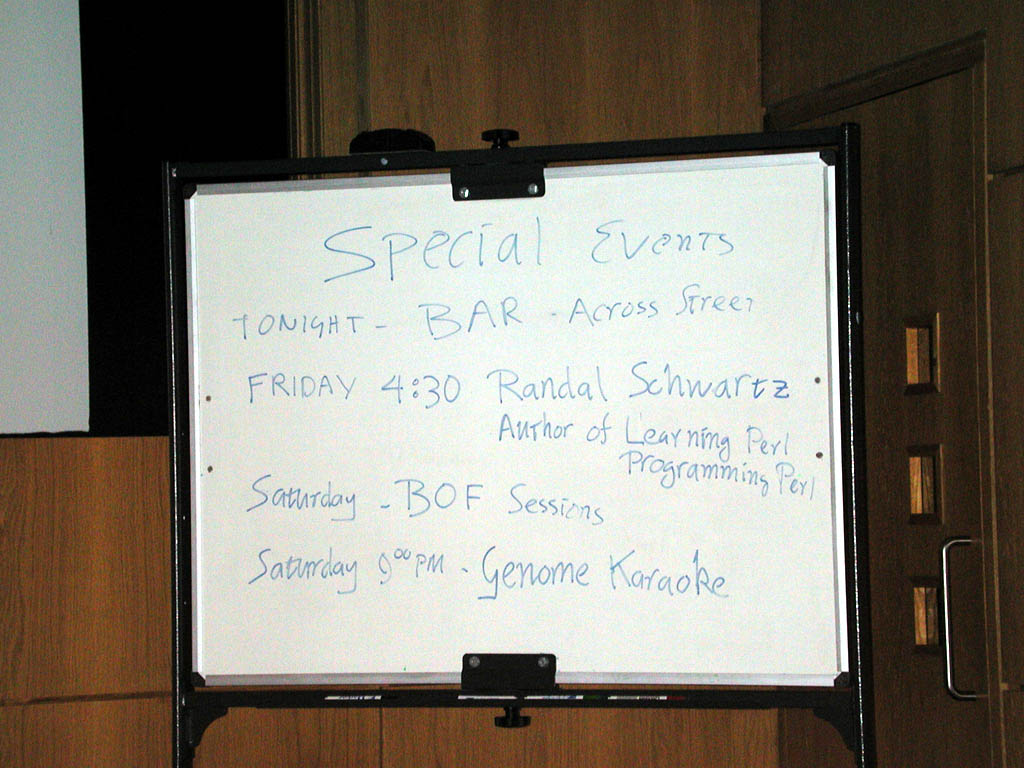 Special Events
TONIGHT - BAR - Across Street
FRIDAY 4:30 Randal Schwartz
Author of Learning Perl
Programming Perl
Saturday - BOF Sessions
Saturday 9:00 PM - Genome Karaoke